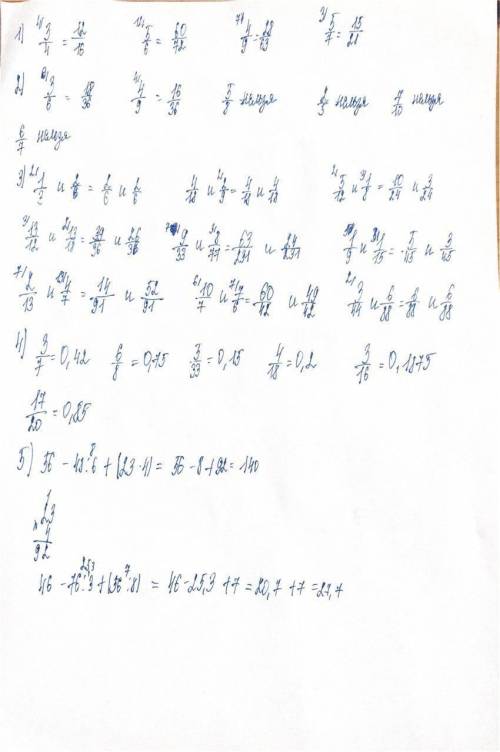 1) 4) 3/4 = 12/16 12) 5/6 = 60/72 7) 4/9 = 28/63 3) 5/7 = 15/21
2) 6) 3/6 = 18/36 4) 4/9 = 16/36 5/8 нельзя 2/3 нельзя 7/10 нельзя
6/7 нельзя
3) 2) 1/3 и = и 4/18 и 2) 2/9 = 4/18 и 4/18 2) 5/12 и 3) 1/8 = 10/24 и 3/24
3) 13/12 и 2) 13/18 = 39/36 и 26/36 7) 9/33 и 3) 8/77 = 63/231 и 24/231 1/9 и 3) 1/15 = 5/45 и 3/45
7) 2/13 и 13) 4/7 = 14/91 и 52/91 6) 10/7 и 7) 7/6 = 60/42 и 49/42 2) 3/44 и 6/88 = 6/88 и 6/88
4) 3/7 = 0,42 6/8 = 0,75 5/33 = 0,15 4/18 = 0,2 3/16 = 0,1875
17/20 = 0,85
5) 56 - 48 : 6 + (23 · 4) = 56 - 8 + 92 = 140
1
23
4
92
46 - 76 : 3 + (56 : 8) = 46 - 25,3 + 7 = 20,7 + 7 = 27,7